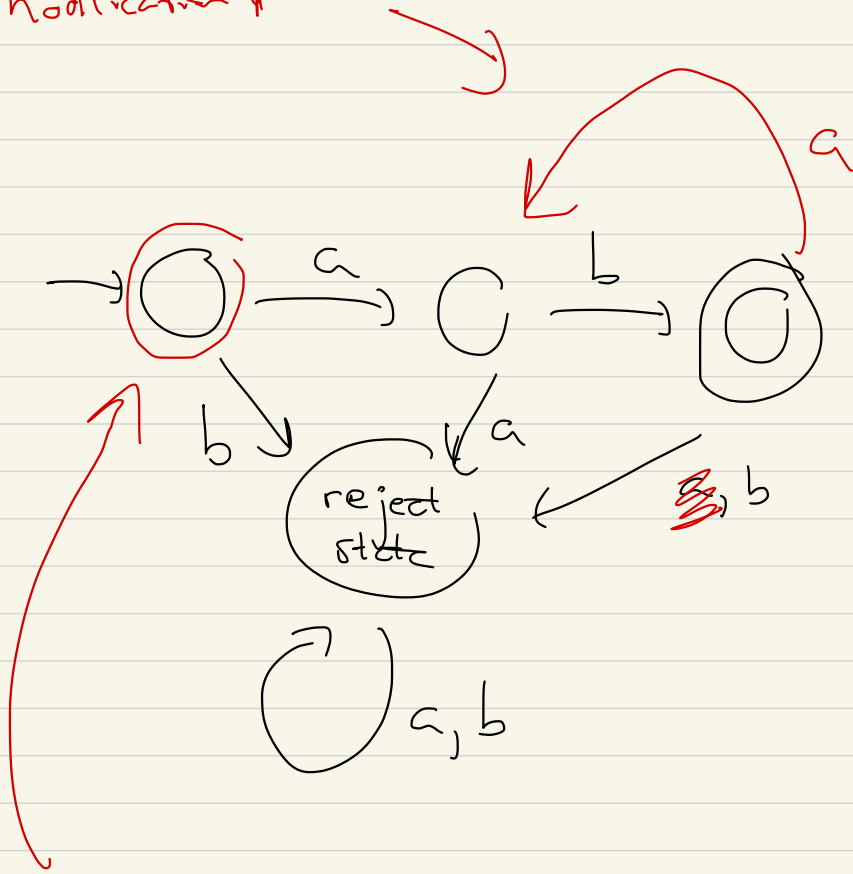 a
a
b
b
a
reject
state
b
a, b